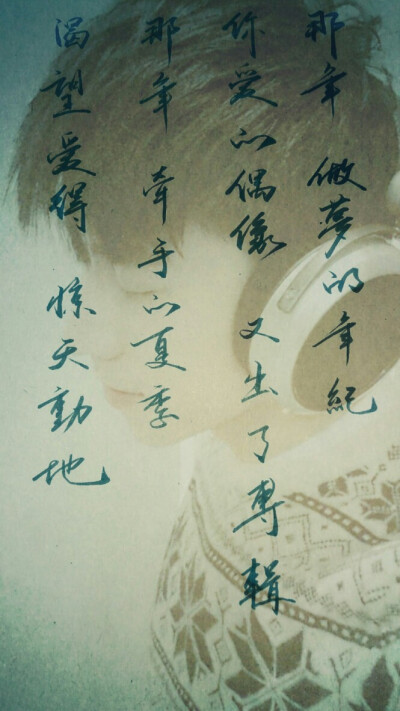 那年 做夢的年紀
你爱的偶像 又出了專輯
那年 牽手的夏季
渴望爱得 惊天動地